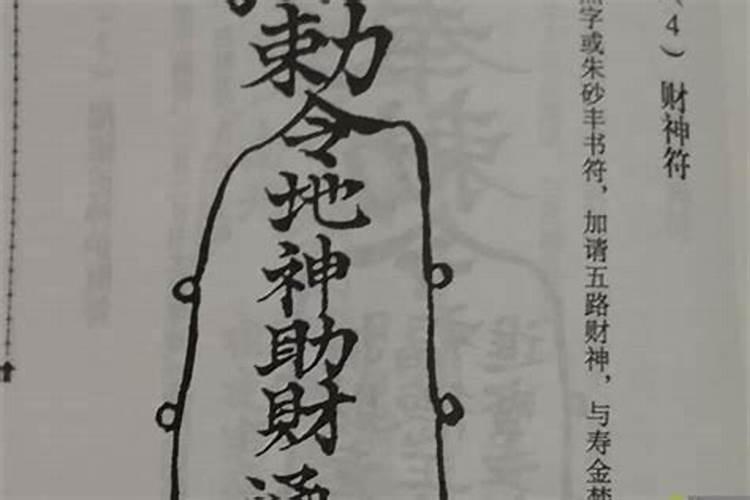 (4) 财神符
字或朱砂丰书符，加请五路财神，与寿金梦
勅令地神助财通